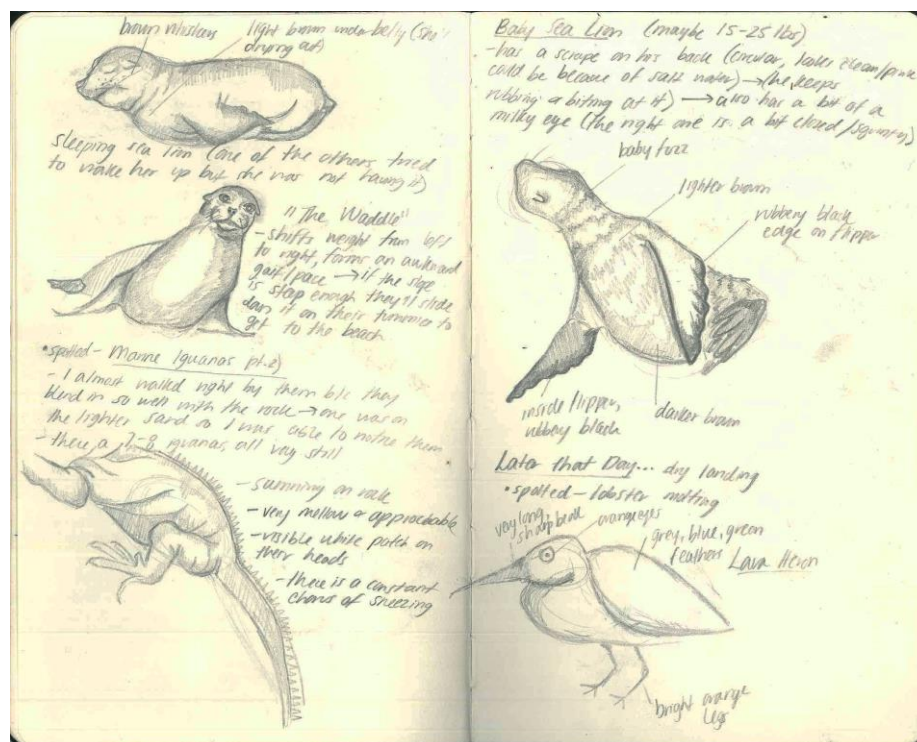 brown whiskers
light brown under belly (she's
drying out)
sleeping sea lion (one of the others tried
to wake her up but she was not having it)
"The Waddle"
- shifts weight from left
to right, forms an awkward
gait/pace → if the
is steep enough they'll slide
down it on their tummies to
get to the beach
• spotted - Marine Iguanas pt. 2)
- I almost walked right by them b/c they
blend in so well with the rock → one was on
the lighter sand so I was able to notice them
- there, a 7-8 iguanas, all very still
- sunning on rock
- very mellow & approachable
- visible white patch on
their heads
- there is a constant
chorus of sneezing
Baby Sea Lion (maybe 15-25 lbs)
- has a scrape on his back (circular, looks clean/pink
could be because of salt water) → (he keeps
rubbing & biting at it) → also has a bit of a
milky eye (The right one is a bit closed/squinty)
baby fuzz
lighter brown
rubbery black
edge on flipper
inside flipper,
rubbery black
darker brown
Later That Day... dry landing
• spotted - lobster molting
very long,
sharp beak
orange eyes
grey, blue, green
feathers
Lava Heron
bright orange
legs